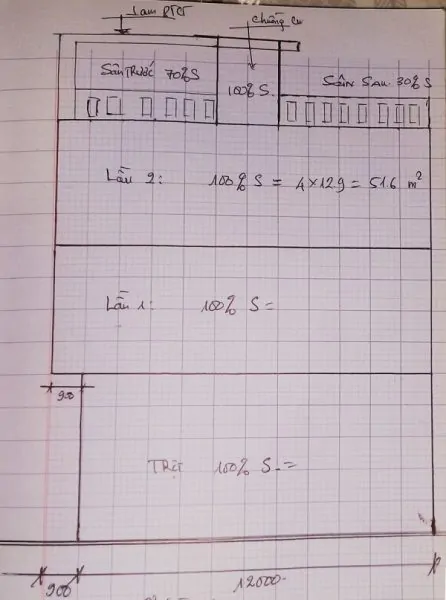 Lam BTCT
Chuồng cu
Sân trước 70% S
100% S.
Sân sau 30% S
Lầu 2: 100% S = 4 x 12.9 = 51.6 m²
Lầu 1: 100% S =
900
Trệt 100% S =
900
12000